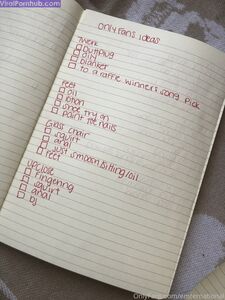 ViralPornhub.com
Onlyfans ideas
Twerk
buttplug
oil
blanket
to a raffle winners song pick
feet
oil
lotion
shoe try on
paint toe nails
Glass chair
squirt
anal
just smoosh&sitting/oil
feet
upclose
fingering
squirt
anal
bj